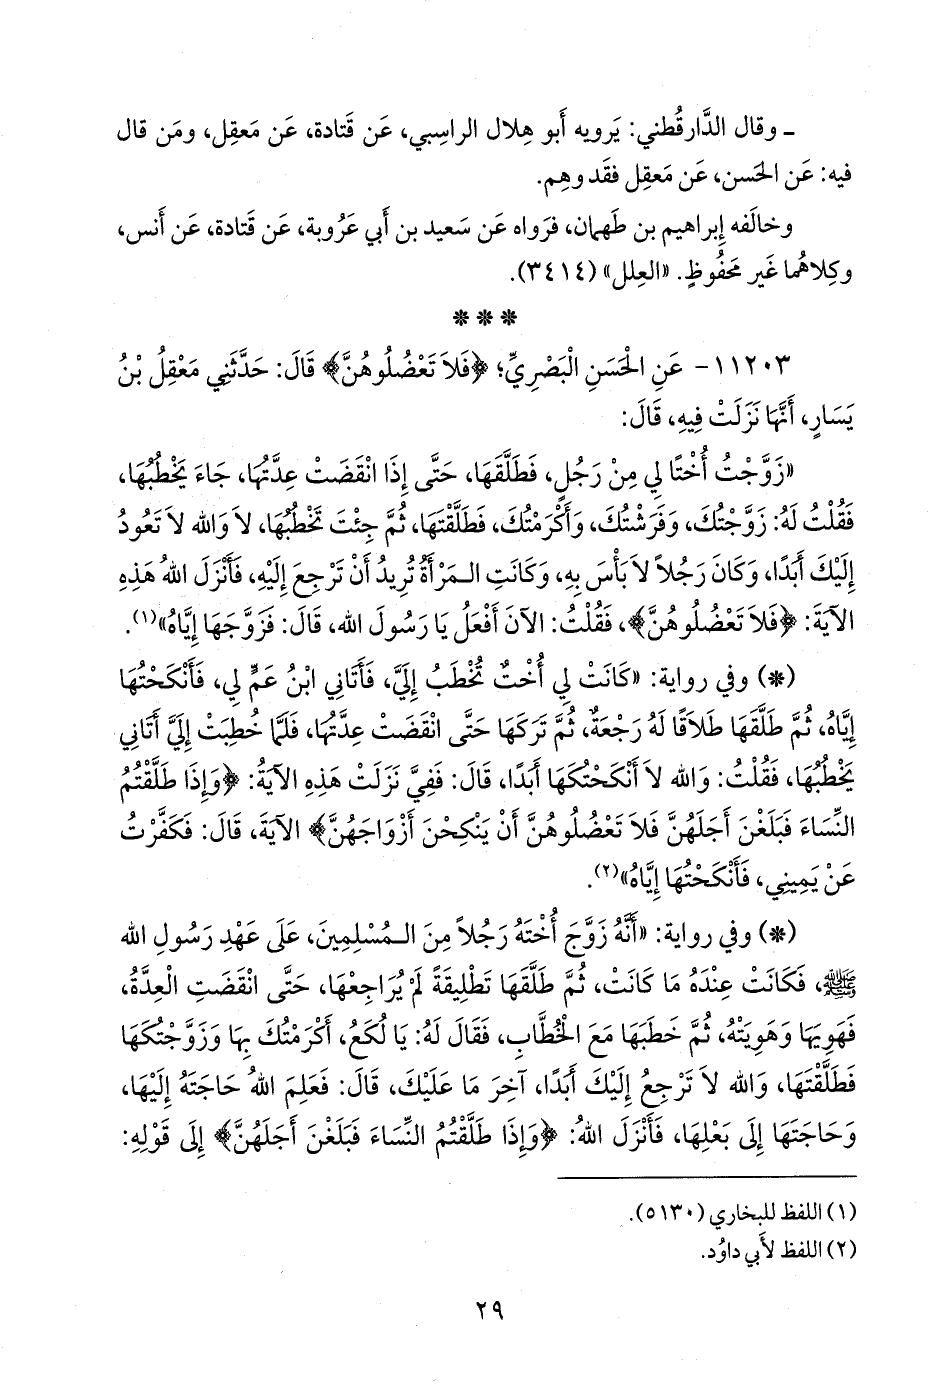 ـ وقال الدَّارقُطني: يَرويه أَبو هِلال الراسِبي، عَن قَتادة، عَن مَعقِل، ومَن قال
فيه: عَن الحَسن، عَن مَعقِل فقَد وهِم.
وخالَفه إِبراهيم بن طَهمان، فرَواه عَن سَعيد بن أَبي عَرُوبة، عَن قَتادة، عَن أَنس،
وكِلاهُما غَير مَحفُوظٍ. «العِلل» (٣٤١٤).
* * *
١١٢٠٣- عَنِ الْحَسَنِ الْبَصْرِيِّ؛ ﴿فَلاَ تَعْضُلُوهُنَّ﴾ قَالَ: حَدَّثَنِي مَعْقِلُ بْنُ
يَسَارٍ، أَنَّهَا نَزَلَتْ فِيهِ، قَالَ:
«زَوَّجْتُ أُخْتًا لِي مِنْ رَجُلٍ، فَطَلَّقَهَا، حَتَّى إِذَا انْقَضَتْ عِدَّتُهَا، جَاءَ يَخْطُبُهَا،
فَقُلْتُ لَهُ: زَوَّجْتُكَ، وَفَرَشْتُكَ، وَأَكْرَمْتُكَ، فَطَلَّقْتَهَا، ثُمَّ جِئْتَ تَخْطُبُهَا، لاَ وَالله لاَ تَعُودُ
إِلَيْكَ أَبَدًا، وَكَانَ رَجُلاً لاَ بَأْسَ بِهِ، وَكَانَتِ الـمَرْأَةُ تُرِيدُ أَنْ تَرْجِعَ إِلَيْهِ، فَأَنْزَلَ اللهُ هَذِهِ
الآيَةَ: ﴿فَلاَ تَعْضُلُوهُنَّ﴾، فَقُلْتُ: الآنَ أَفْعَلُ يَا رَسُولَ الله، قَالَ: فَزَوَّجَهَا إِيَّاهُ»(١).
(*) وفي رواية: «كَانَتْ لِي أُخْتٌ تُخْطَبُ إِلَيَّ، فَأَتَانِي ابْنُ عَمٍّ لِي، فَأَنْكَحْتُهَا
إِيَّاهُ، ثُمَّ طَلَّقَهَا طَلاَقًا لَهُ رَجْعَةٌ، ثُمَّ تَرَكَهَا حَتَّى انْقَضَتْ عِدَّتُهَا، فَلَمَّا خُطِبَتْ إِلَيَّ أَتَانِي
يَخْطُبُهَا، فَقُلْتُ: وَالله لاَ أَنْكَحْتُكَهَا أَبَدًا، قَالَ: فَفِيَّ نَزَلَتْ هَذِهِ الآيَةُ: ﴿وَإِذَا طَلَّقْتُمُ
النِّسَاءَ فَبَلَغْنَ أَجَلَهُنَّ فَلاَ تَعْضُلُوهُنَّ أَنْ يَنْكِحْنَ أَزْوَاجَهُنَّ﴾ الآيَةَ، قَالَ: فَكَفَّرْتُ
عَنْ يَمِينِي، فَأَنْكَحْتُهَا إِيَّاهُ»(٢).
(*) وفي رواية: «أَنَّهُ زَوَّجَ أُخْتَهُ رَجُلاً مِنَ الـمُسْلِمِينَ، عَلَى عَهْدِ رَسُولِ الله
ﷺ، فَكَانَتْ عِنْدَهُ مَا كَانَتْ، ثُمَّ طَلَّقَهَا تَطْلِيقَةً لَمْ يُرَاجِعْهَا، حَتَّى انْقَضَتِ الْعِدَّةُ،
فَهَوِيَهَا وَهَوِيَتْهُ، ثُمَّ خَطَبَهَا مَعَ الْخُطَّابِ، فَقَالَ لَهُ: يَا لُكَعُ، أَكْرَمْتُكَ بِهَا وَزَوَّجْتُكَهَا
فَطَلَّقْتَهَا، وَالله لاَ تَرْجِعُ إِلَيْكَ أَبَدًا، آخِرَ مَا عَلَيْكَ، قَالَ: فَعَلِمَ اللهُ حَاجَتَهُ إِلَيْهَا،
وَحَاجَتَهَا إِلَى بَعْلِهَا، فَأَنْزَلَ اللهُ: ﴿وَإِذَا طَلَّقْتُمُ النِّسَاءَ فَبَلَغْنَ أَجَلَهُنَّ﴾ إِلَى قَوْلِهِ:
(١) اللفظ للبخاري (٥١٣٠).
(٢) اللفظ لأَبي داوُد.
٢٩